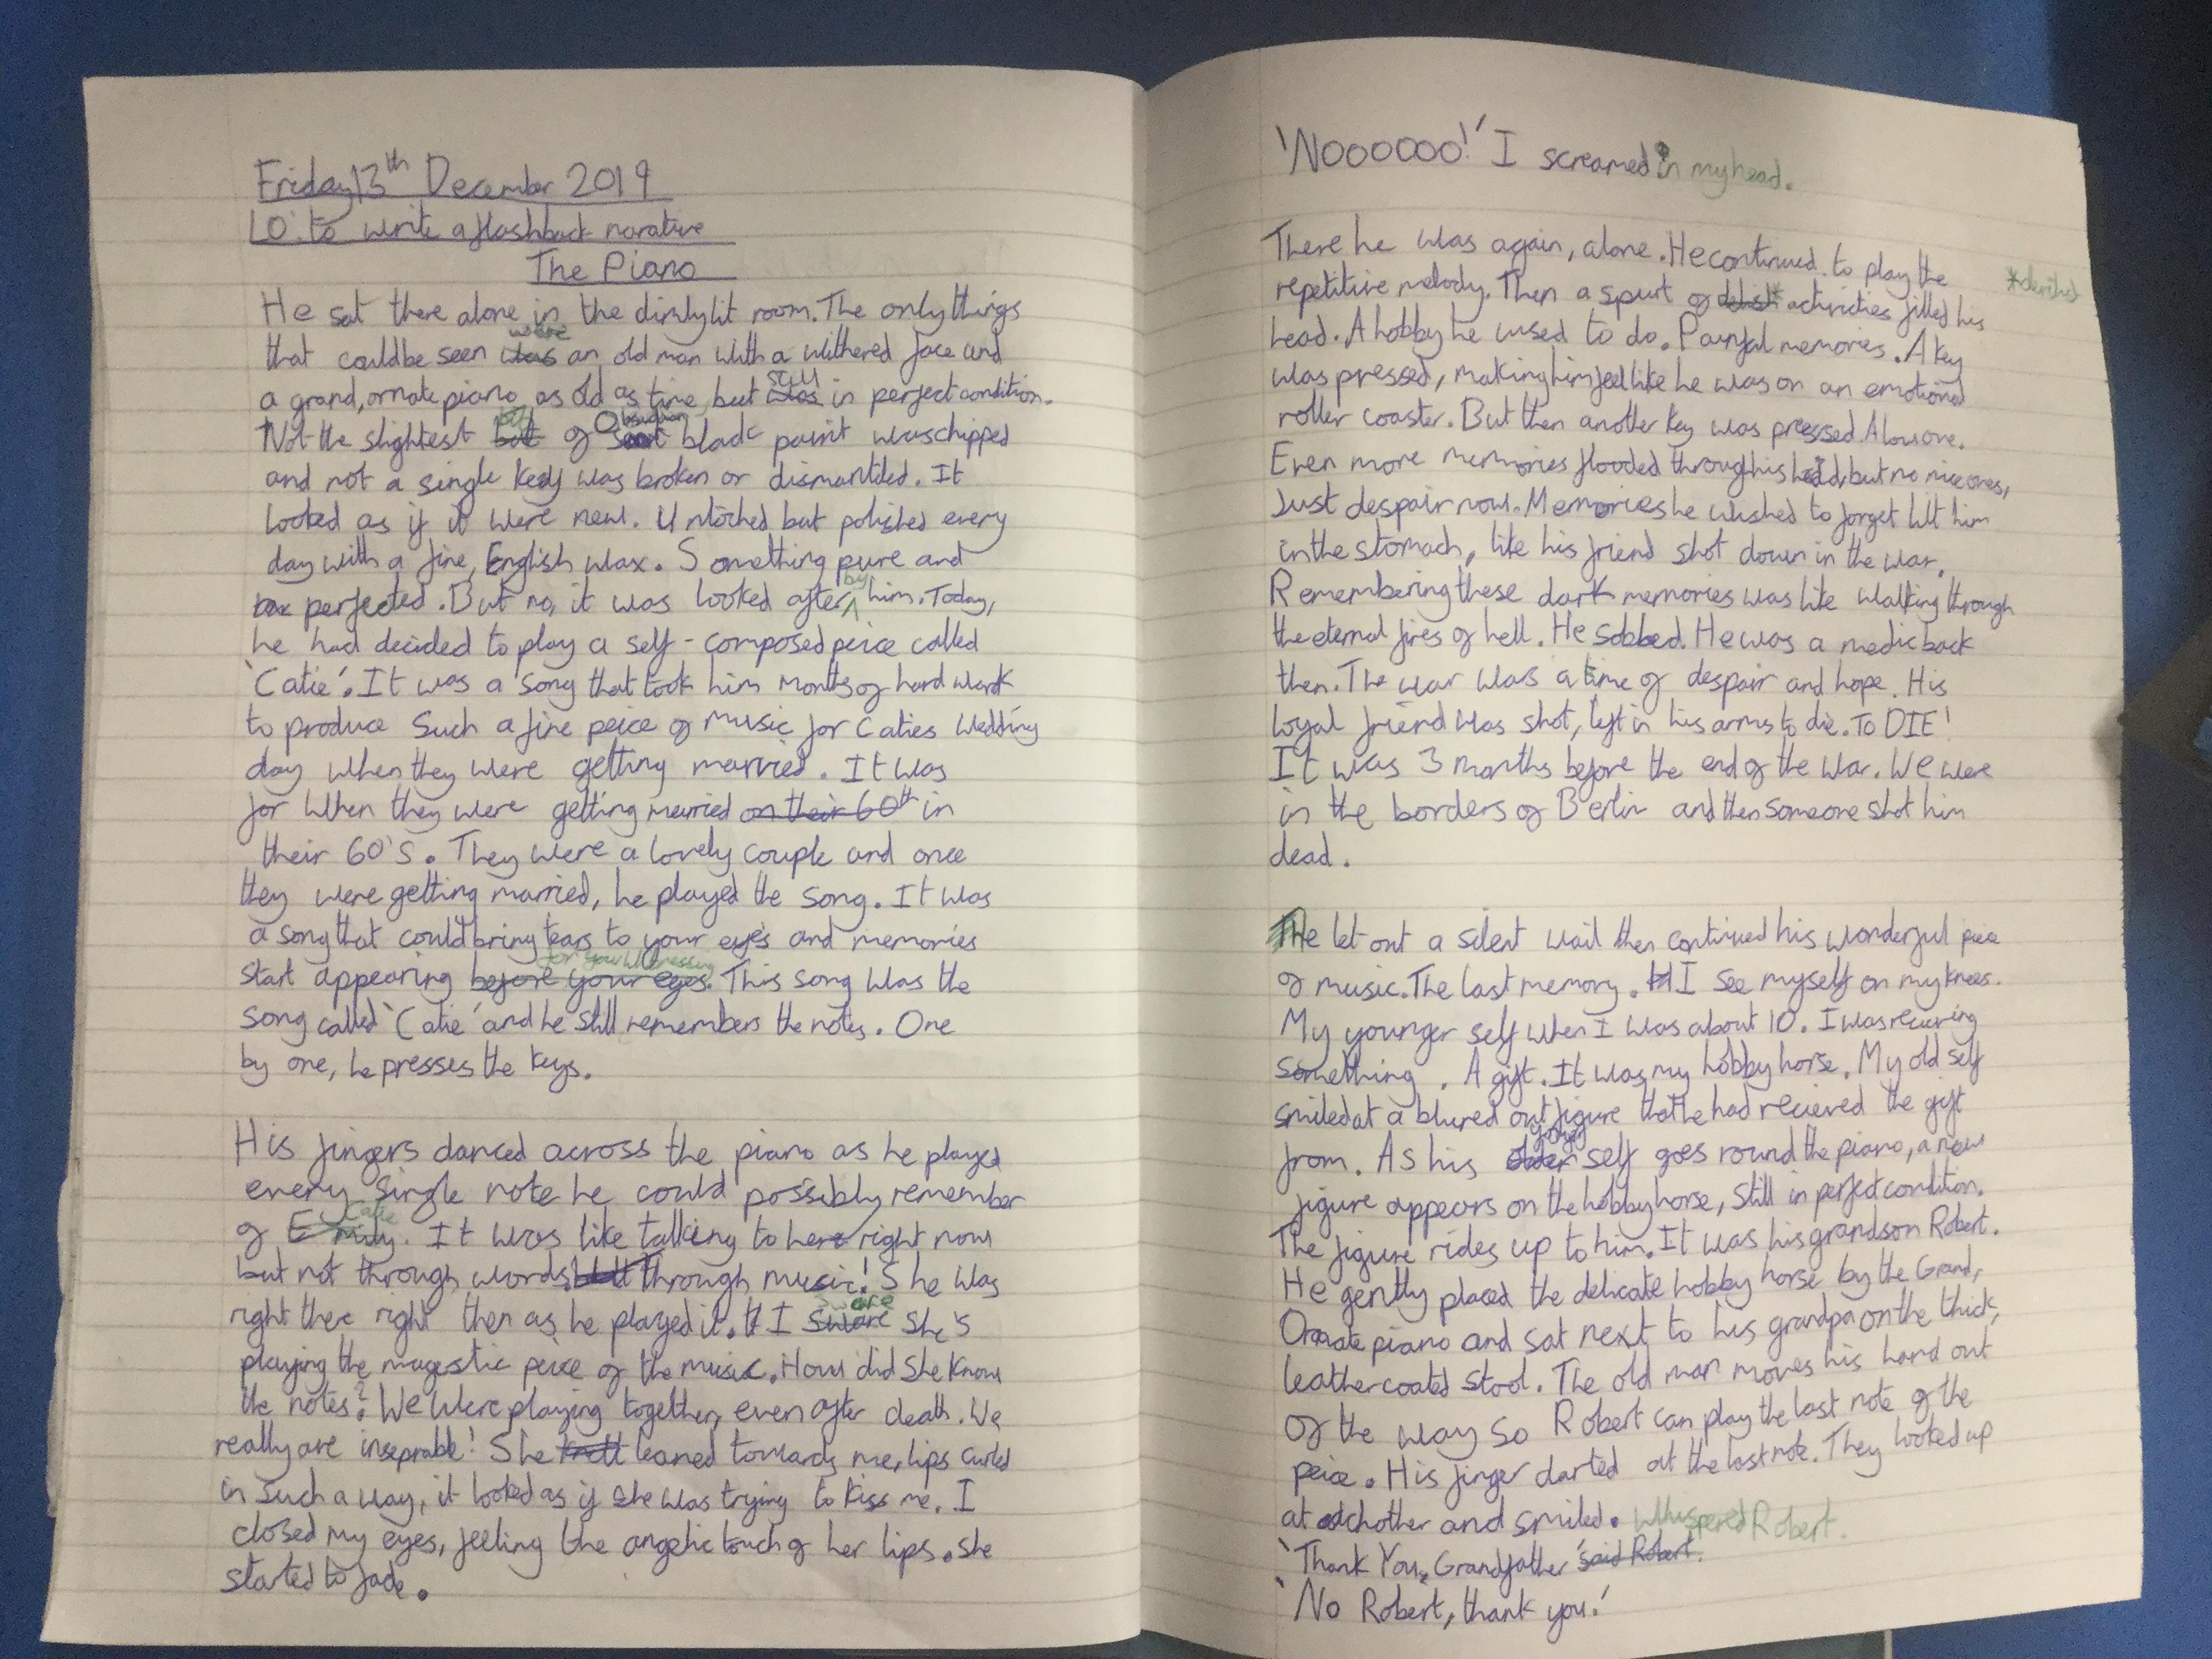 Friday 13th December 2019
LO: to write a flashback narative
The Piano
He sat there alone in the dimly lit room. The only things
that could be seen were an old man with a withered face and
a grand, ornate piano as old as time, but still in perfect condition.
Not the slightest bit of Obsidian black paint was chipped
and not a single key was broken or dismantled. It
looked as if it were new. Untoched but polished every
day with a fine, English wax. Something pure and
perfected. But no, it was looked after by him. Today,
he had decided to play a self-composed peice called
'Catie'. It was a song that took him months of hard work
to produce such a fine peice of music for Caties wedding
day when they were getting married. It was
for when they were getting married on their 60th in
their 60's. They were a lovely couple and once
they were getting married, he played the song. It was
a song that could bring tears to your eyes and memories
start appearing for your witnessing. This song was the
song called 'Catie' and he still remembers the notes. One
by one, he presses the keys.
His fingers danced across the piano as he played
every single note he could possibly remember
of Catie. It was like talking to her right now
but not through words through music! She was
right there right then as he played it. I sware she's
playing the magestic peice of the music. How did she know
the notes? We were playing together, even after death. We
really are inseprable! She leaned towards me, lips curled
in such a way, it looked as if she was trying to kiss me. I
closed my eyes, feeling the angelic touch of her lips. She
started to fade.
'Nooooooo!' I screamed in my head.
There he was again, alone. He continued to play the
repetitive melody. Then a spurt of activities filled his
head. A hobby he used to do. Painful memories. A key
was pressed, making him feel like he was on an emotional
roller coaster. But then another key was pressed. A low one.
Even more memories flooded through his head, but no nice ones,
Just despair now. Memories he wished to forget hit him
in the stomach, like his friend shot down in the war.
Remembering these dark memories was like walking through
the eternal fires of hell. He sobbed. He was a medic back
then. The war was a time of despair and hope. His
loyal friend was shot, left in his arms to die. To DIE!
It was 3 months before the end of the war. We were
in the borders of Berlin and then someone shot him
dead.
He let out a silent wail then continued his wonderful peice
of music. The last memory. I see myself on my knees.
My younger self when I was about 10. I was recieving
something. A gift. It was my hobby horse. My old self
smiled at a blured out figure that he had recieved the gift
from. As his young self goes round the piano, a new
figure appears on the hobby horse, still in perfect condition.
The figure rides up to him. It was his grandson Robert.
He gently placed the delicate hobby horse by the Grand,
Ornate piano and sat next to his grandpa on the thick,
leather coated stool. The old man moves his hand out
of the way so Robert can play the last note of the
peice. His finger darted at the last note. They looked up
at eachother and smiled. whispered Robert.
'Thank You, Grandfather' said Robert.
'No Robert, thank you.'